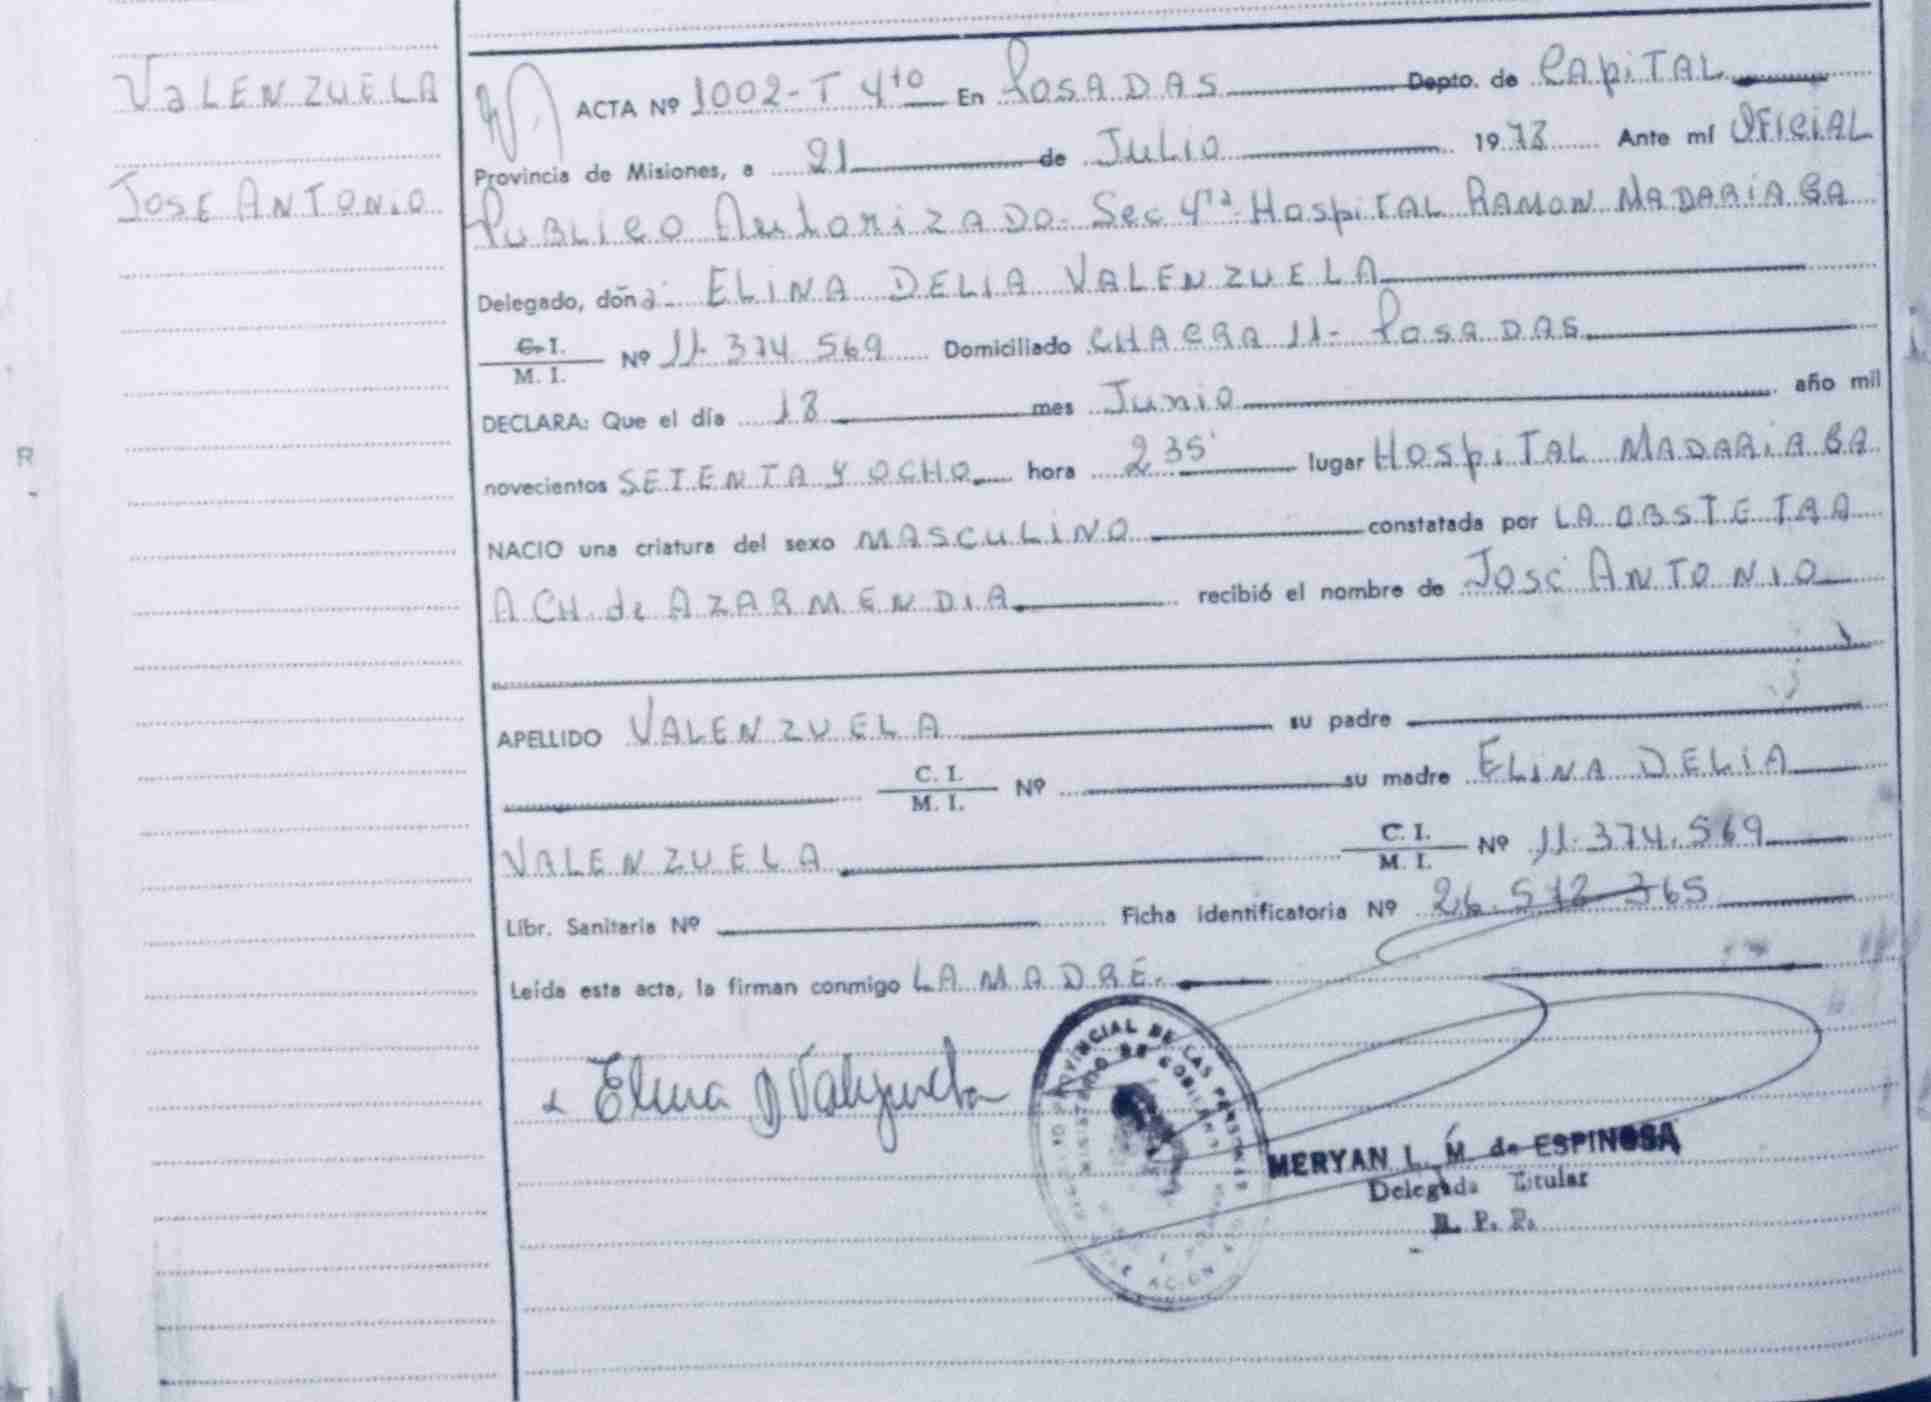 VALENZUELA
JOSE ANTONIO
R
ACTA Nº 1002-T 4to En POSADAS Depto. de CAPITAL
Provincia de Misiones, a 21 de Julio 1978 Ante mí OFICIAL
PUBLICO Autorizado- Sec 4ta- Hospital RAMON MADARIAGA
Delegado, doña: ELINA DELIA VALENZUELA
C. I.
M. I. Nº 11.374.569 Domiciliado CHACRA 11- POSADAS
DECLARA: Que el día 18 mes Junio año mil
novecientos SETENTA Y OCHO hora 2 35' lugar HOSPITAL MADARIAGA
NACIO una criatura del sexo MASCULINO constatada por LA OBSTETRA
A CH. de AZARMENDIA recibió el nombre de JOSE ANTONIO
APELLIDO VALENZUELA su padre
C. I.
M. I. Nº su madre ELINA DELIA
VALENZUELA C. I.
M. I. Nº 11.374.569
Libr. Sanitaria Nº Ficha identificatoria Nº 26.512 365
Leída esta acta, la firman conmigo LA MADRE.
Elina D Valenzuela
PROVINCIAL DE LAS PERSONAS
MINISTERIO DE GOBIERNO
MERYAN L. M. de ESPINOSA
Delegada Titular
R. P. P.